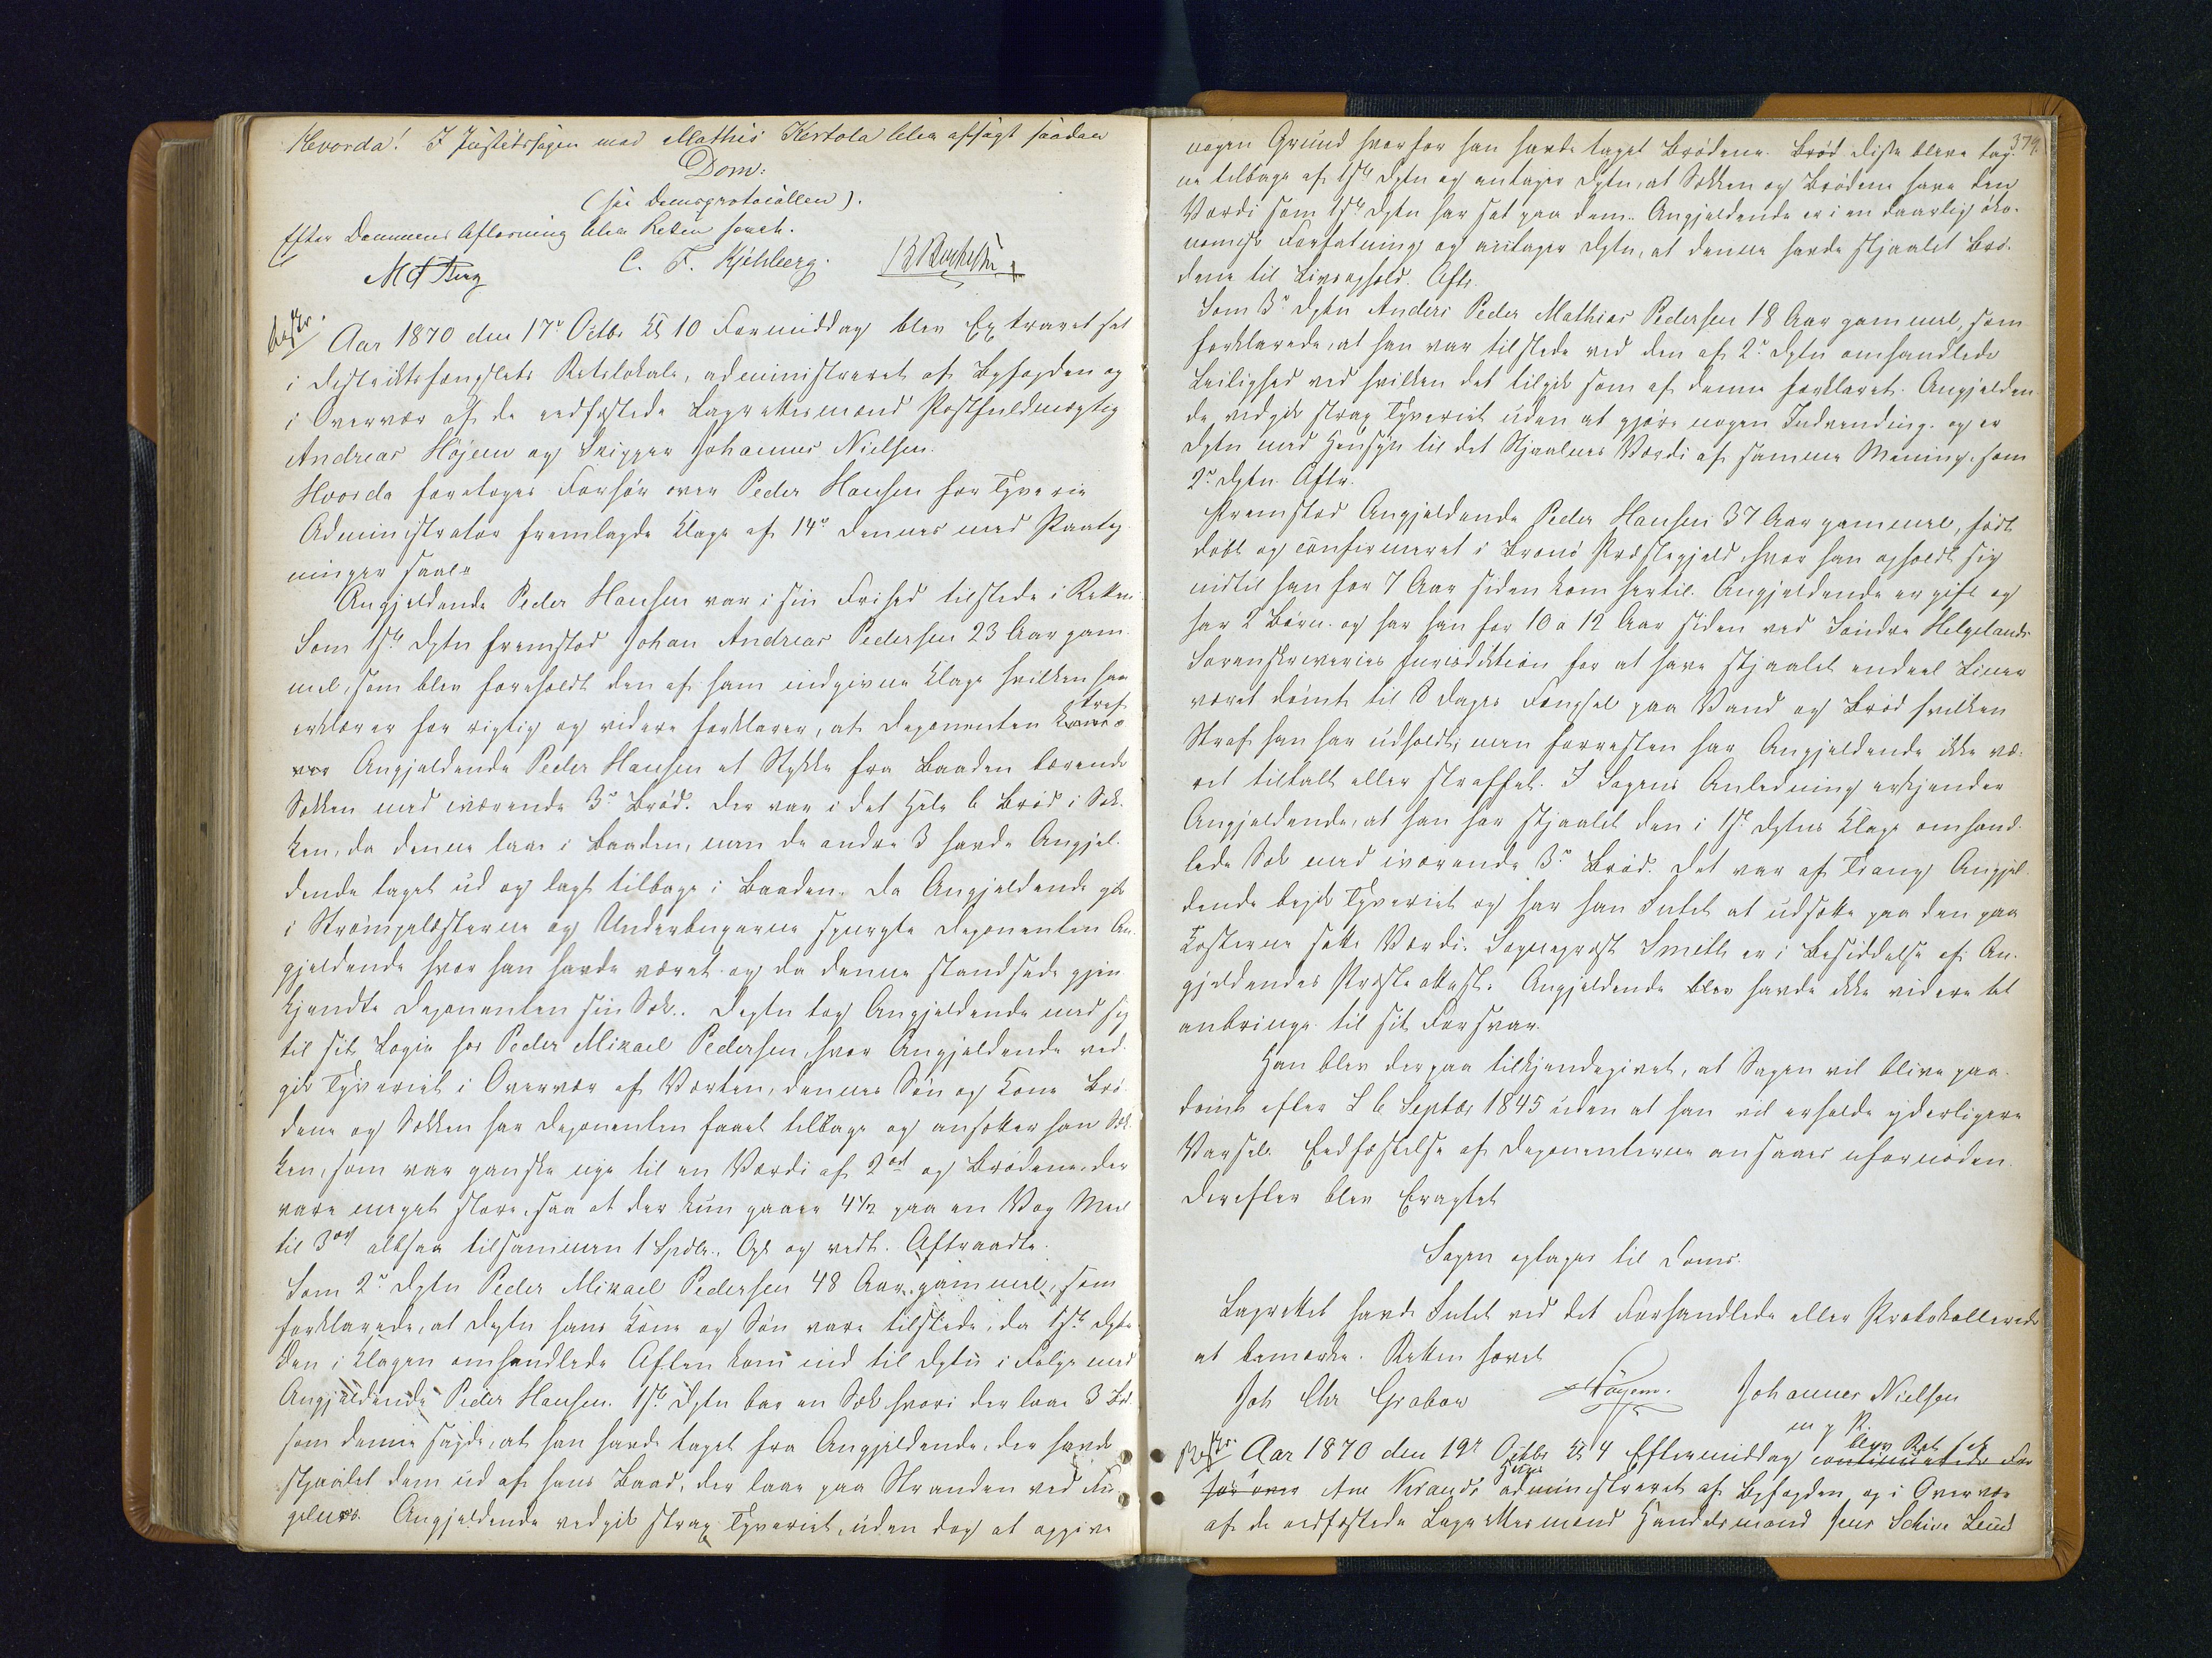 Hvorda! I Justitssagen mod Mathis Kertola blev afsagt saadan
Dom:
(se Domsprotocollen).
Efter Dommens Aflæsning blev Retten hævet.
C. F. Kjehlberg.
beskr. Aar 1870 den 17de Octbr Kl 10 Formiddag blev Extraret sat
i Distriktsfængslets Retslokale, administreret af Byfogden og
i Overvær af de eedfæstede Lagrettesmænd Postfuldmægtig
Andreas Højem og Skipper Johannes Nielsen.
Hvorda foretoges Forhør over Peder Hansen for Tyverie
Administrator fremlagde Klage af 14de dennes med Paateg
ninger saal:
Angjeldende Peder Hansen var i sin Frihed tilstede i Retten.
Som 1ste Dptn fremstod Johan Andreas Pedersen 23 Aar gam
mel, som blev foreholdt den af ham indgivne Klage hvilken han
erklærer for rigtig og videre forklarer, at Deponenten traf
Angjeldende Peder Hansen et Stykke fra Baaden bærende
Sækken med iværende 3de Brød. Der var i det Hele 6 Brød i Sæk
ken, da denne laae i Baaden, men de andre 3 havde Angjel-
dende taget ud og lagt tilbage i Baaden. Da Angjeldende gik
i Strømpelæsterne og Underbuxerne spurgte Deponenten An-
gjeldende hvor han havde været og da denne standsede gjen
kjendte Deponenten sin Sæk. Dептn tog Angjeldende med sig
til sit Logie hos Peder Mikael Pedersen, hvor Angjeldende ved-
gik Tyveriet i Overvær af Værten, dennes Søn og Kone Brø
dene og Sækken har Deponenten faaet tilbage og ansætter han Sæk
ken, som var ganske nye til en Værdi af 2ort og Brødene, der
vare meget store, saa at der kun gaaer 4 1/2 paa en Vog Meel
til 3ort altsaa tilsammen 1 Spdlr. Opl og vedt. Aftraadte.
Som 2de Dptn Peder Mikael Pedersen 48 Aar gammel, som
forklarede, at Dptn hans Kone og Søn vare tilstede, da 1ste Dptn
den i Klagen omhandlede Aften kom ind til Dptn i Følge med
Angjeldende Peder Hansen. 1ste Dptn bar en Sæk hvori der laae 3 Brød
som denne sagde, at han havde taget fra Angjeldende, der havde
stjaalet dem ud af hans Baad, der laae paa Stranden ved
Angjeldende vedgik strax Tyveriet, uden dog at opgive
379.
nogen Grund hvorfor han havde taget Brødene. Brød disse bleve tag-
ne tilbage af 1ste Dptn og antager Dptn, at Sækken og Brødene have den
Værdi som 1ste Dptn har sat paa dem. Angjeldende er i en daarlig øko-
nomisk Forfatning og antager Dptn, at denne havde stjaalet Brø-
dene til Livsophold. Aftr.
Som 3de Dptn Anders Peder Mathias Pedersen 18 Aar gammel, som
forklarede, at han var tilstede ved den af 2de Dptn omhandlede
Leilighed ved hvilken det tilgik som af denne forklaret. Angjelden
de vedgik strax Tyveriet uden at gjøre nogen Indvending. og er
Dptn med Hensyn til det Stjaalnes Værdi af samme Mening, som
2de Dptn. Aftr.
Fremstod Angjeldende Peder Hansen 37 Aar gammel, født
døbt og confirmeret i Brønø Præstegjeld, hvor han opholdt sig
indtil han for 7 Aar siden kom hertil. Angjeldende er gift og
har 2 Børn. og har han for 10 a 12 Aar siden ved Søndre Helgelands
Sorenskriveries Jurisdiktion for at have stjaalet endeel Liner
været dømt til 8 Dages Fængsel paa Vand og Brød hvilken
Straf han har udholdt; men forresten har Angjeldende ikke væ-
ret tiltalt eller straffet. I Sagens Anledning erkjender
Angjeldende, at han har stjaalet den i 1ste Dptns Klage omhand
lede Sæk med iværende 3de Brød. Det var af Trang Angjel
dende begik Tyveriet og har han Intet at udsætte paa den paa
Kosterne satte Værdi. Sognepræst Smith er i Besiddelse af An-
gjeldendes Præsteattest. Angjeldende blev havde ikke videre at
anbringe til sit Forsvar.
Han blev derpaa tilkjendegivet, at Sagen vil blive paa-
dømt efter L 6 Septbr 1845 uden at han vil erholde yderligere
Varsel. Eedfæstelse af Deponenterne ansaaes ufornøden.
Derefter blev Eragtet
Sagen optages til Doms.
Lagrettet havde Intet ved det Forhandlede eller Protokollerede
at bemærke. Retten hævet
Joh Chr Grabow Højem. Johannes Nielsen
m p P.
Beskr. Aar 1870 den 19de Octbr Kl 4 Eftermiddag continuerede For blev Ret sat
hør over Ane Hus administreret af Byfogden og i Overvær
af de eedfæstede Lagrettesmænd Handelsmand Jens Schive Lund